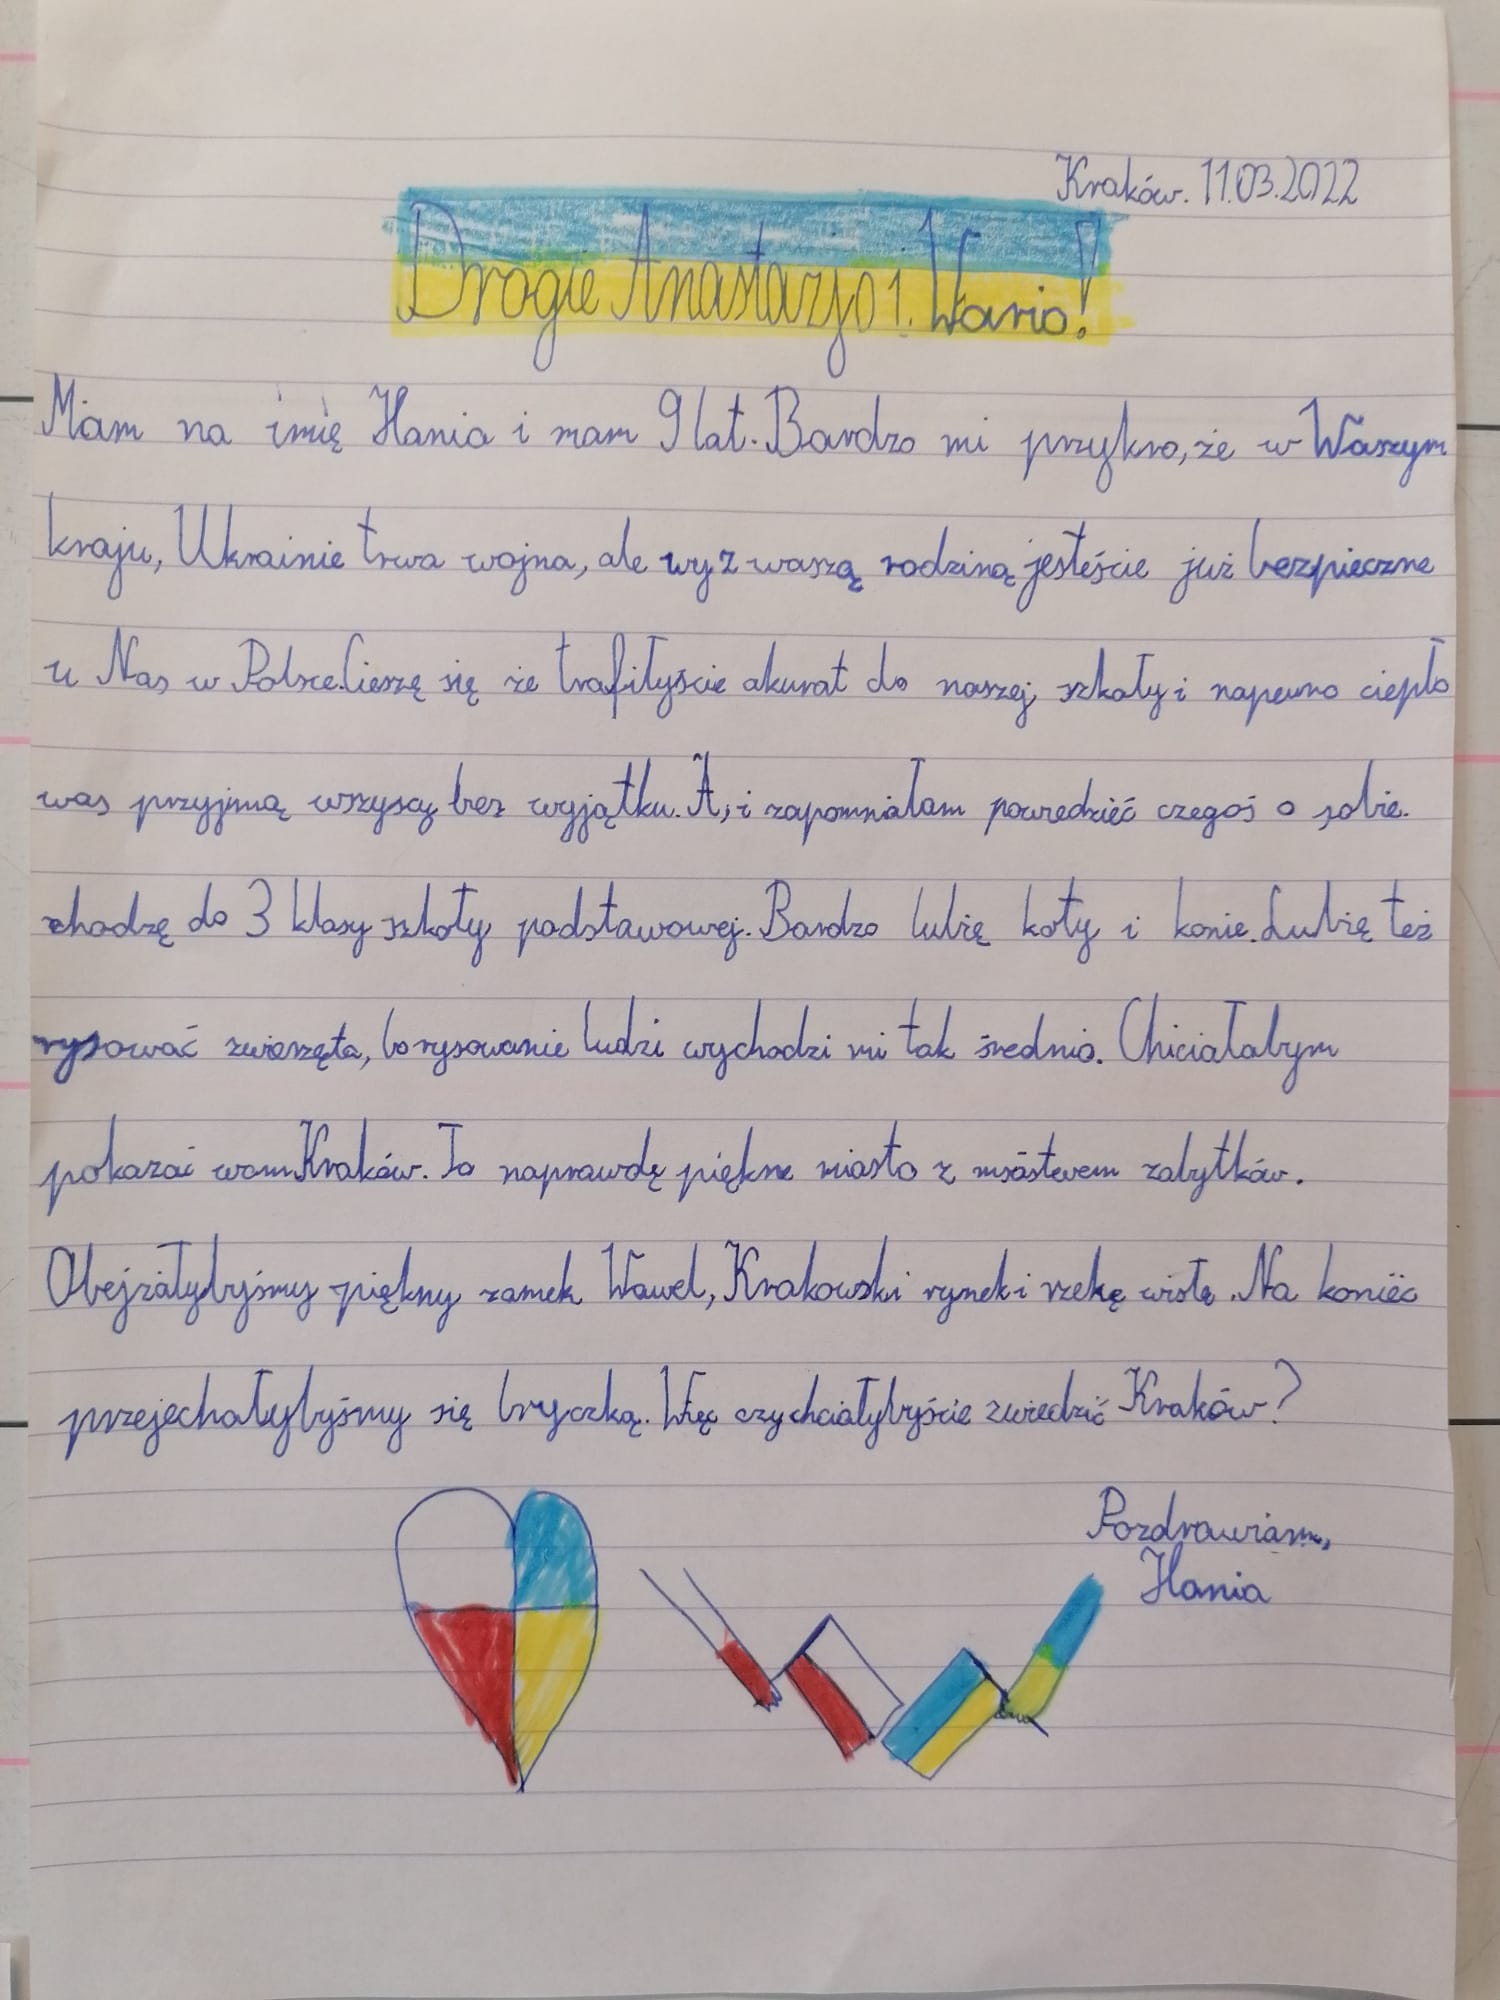 Kraków. 11.03.2022
Drogie Anastazjo i Wario!
Mam na imię Hania i mam 9 lat. Bardzo mi przykro, że w Waszym
kraju, Ukrainie trwa wojna, ale wy z waszą rodziną jesteście już bezpieczne
u Nas w Polsce. Cieszę się że trafiłyście akurat do naszej szkoły i napewno ciepło
was przyjmą wszyscy bez wyjątku. A, i zapomniałam powiedzieć czegoś o sobie.
chodzę do 3 klasy szkoły podstawowej. Bardzo lubię koty i konie. Lubię też
rysować zwierzęta, bo rysowanie ludzi wychodzi mi tak średnio. Chiciałabym
pokazać wam Kraków. To naprawdę piękne miasto z zabytków.
Obejżałybyśmy piękny zamek Wawel, Krakowski rynek i rzekę wisłę. Na koniec
przejechałybyśmy się bryczką. Więc czy chciałybyście zwiedzić Kraków?
Pozdrawiam,
Hania